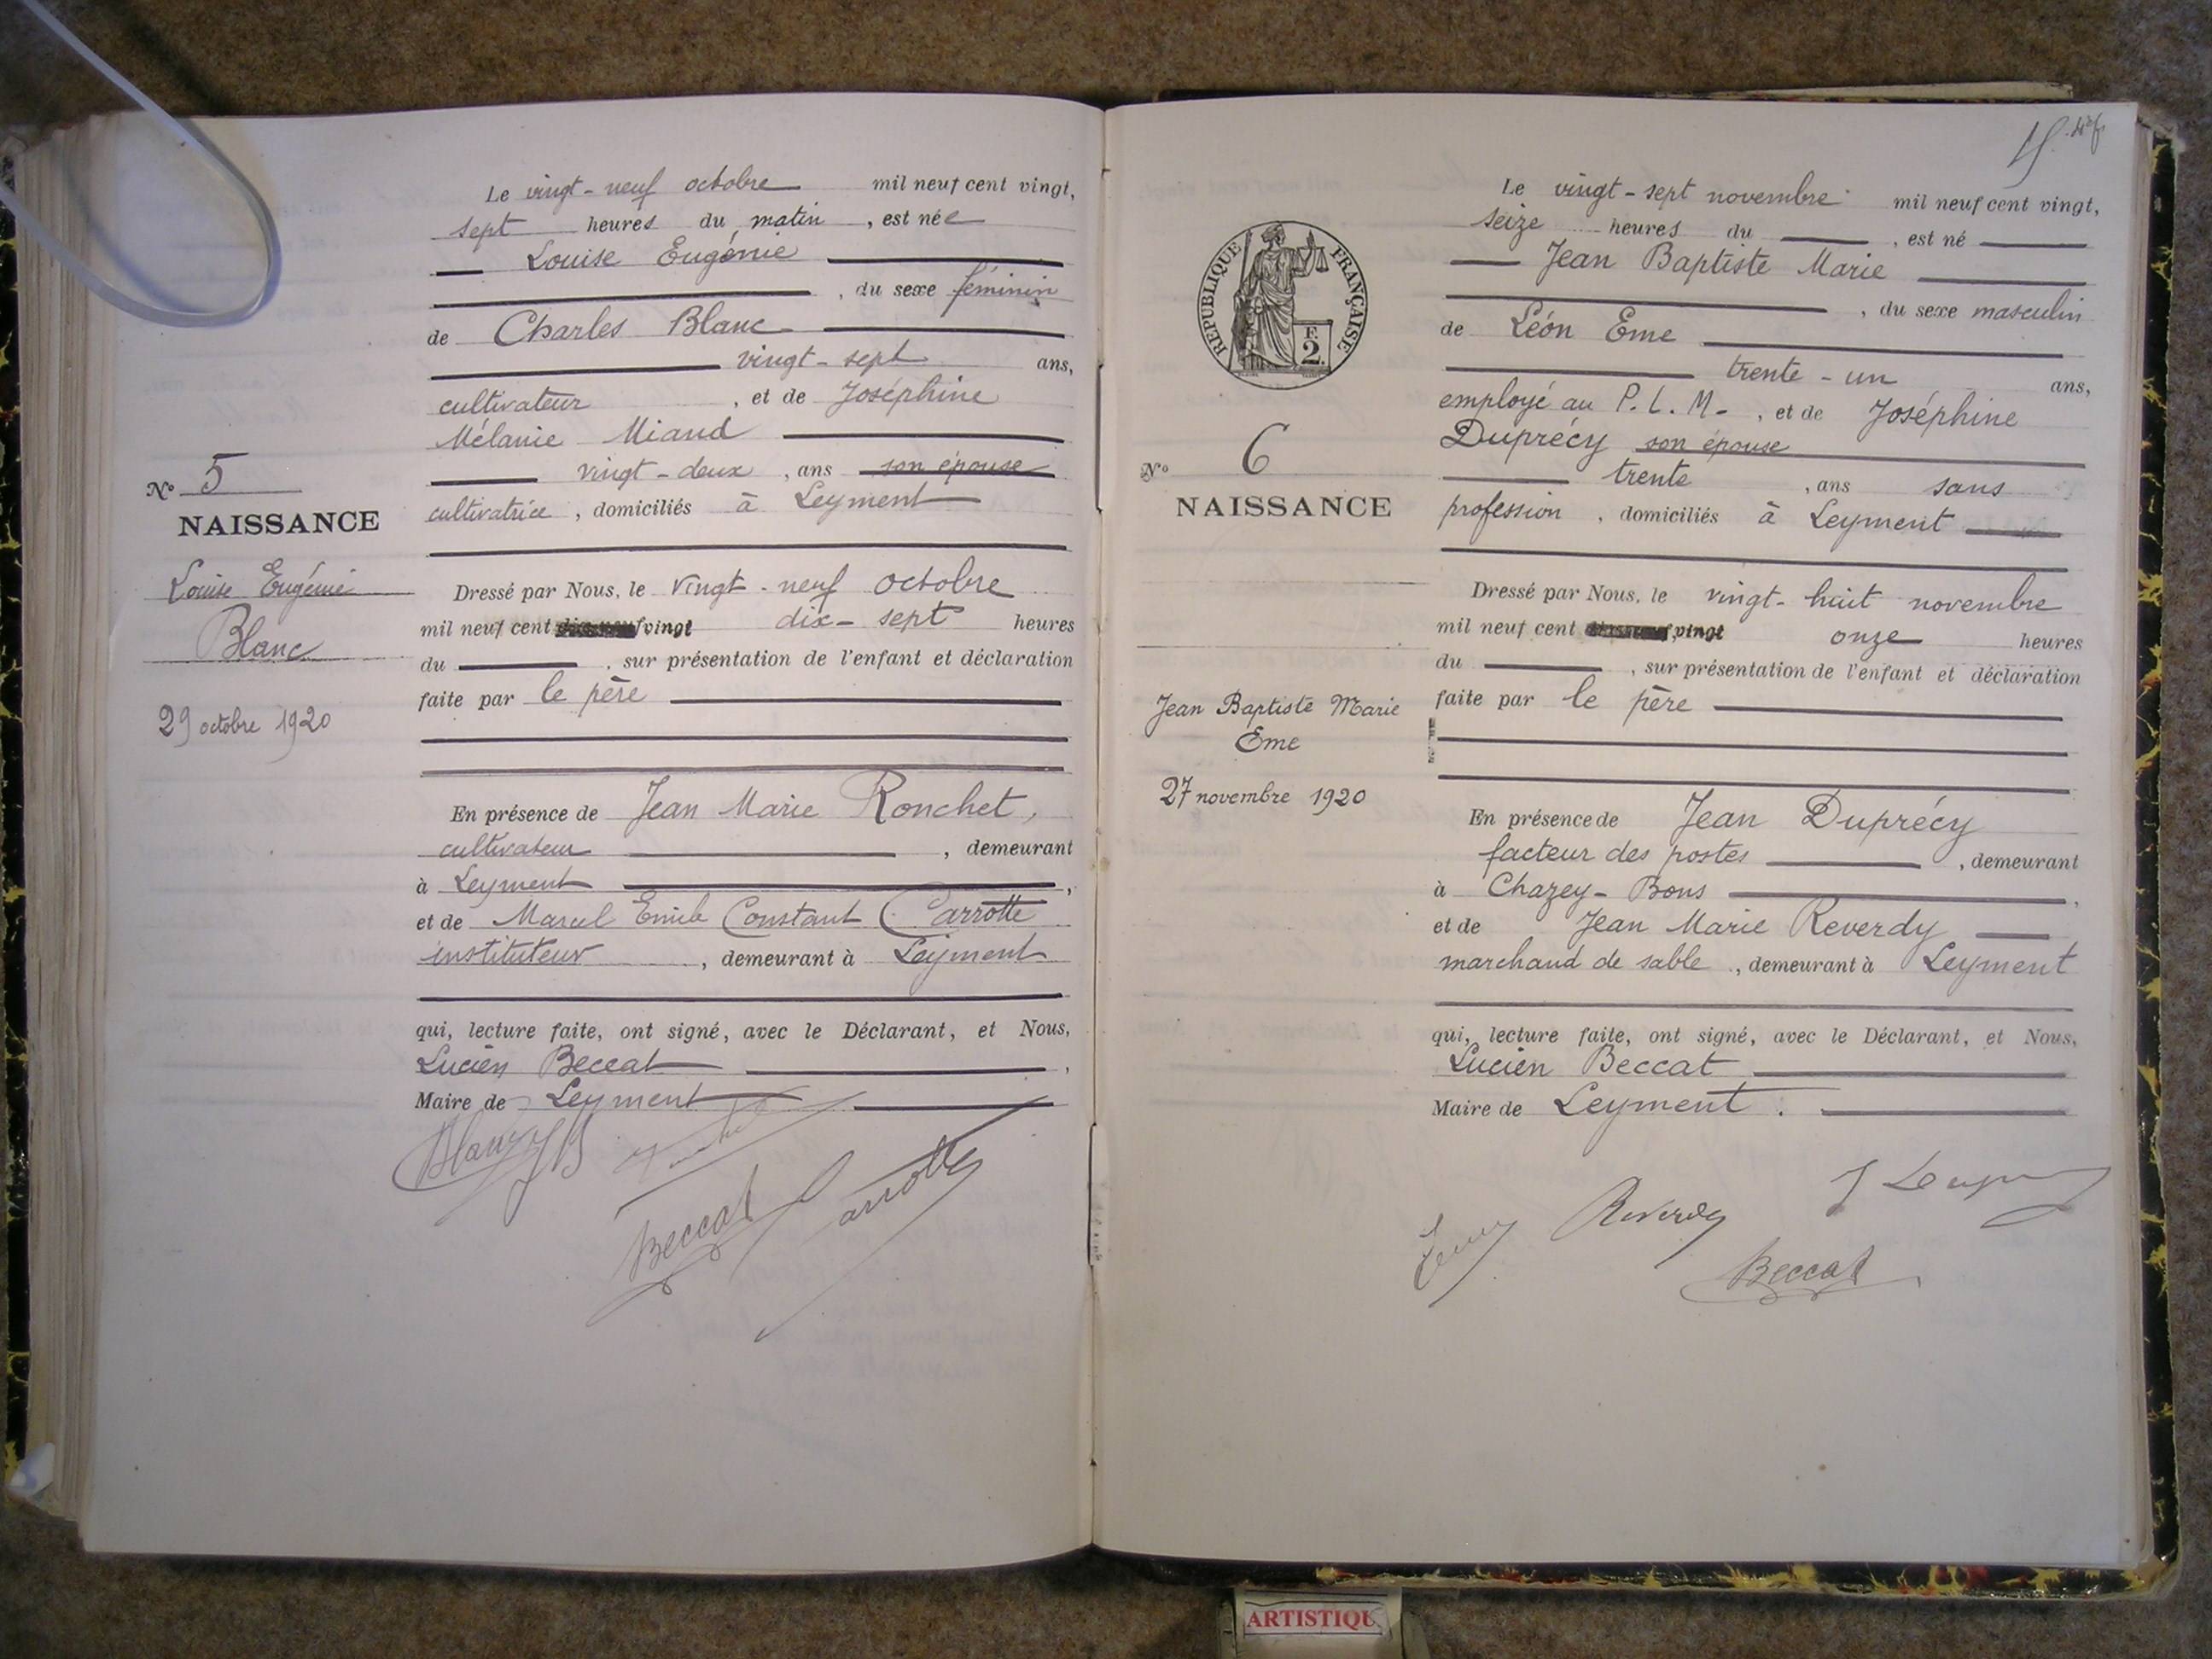 Le vingt-neuf octobre mil neuf cent vingt,
sept heures du matin, est née
Louise Eugénie
, du sexe féminin
de Charles Blanc
vingt-sept ans,
cultivateur, et de Joséphine
Mélanie Miand
vingt-deux, ans son épouse
cultivatrice, domiciliés à Leyment
N° 5
NAISSANCE
Louise Eugénie
Blanc
29 octobre 1920
Dressé par Nous, le vingt-neuf octobre
mil neuf cent vingt dix-sept heures
du , sur présentation de l'enfant et déclaration
faite par le père
En présence de Jean Marie Ronchet,
cultivateur, demeurant
à Leyment,
et de Marcel Emile Constant Carrotte
instituteur, demeurant à Leyment
qui, lecture faite, ont signé, avec le Déclarant, et Nous,
Lucien Beccat,
Maire de Leyment
Beccat
Carrotte
Le vingt-sept novembre mil neuf cent vingt,
seize heures du , est né
Jean Baptiste Marie
, du sexe masculin
de Léon Eme
trente-un ans,
employé au P.L.M., et de Joséphine
Duprécy son épouse
trente, ans sans
profession, domiciliés à Leyment
REPUBLIQUE FRANÇAISE
F.
2.
N° 6
NAISSANCE
Jean Baptiste Marie
Eme
27 novembre 1920
Dressé par Nous, le vingt-huit novembre
mil neuf cent vingt onze heures
du , sur présentation de l'enfant et déclaration
faite par le père
En présence de Jean Duprécy
facteur des postes, demeurant
à Chazey-Bons,
et de Jean Marie Reverdy
marchand de sable, demeurant à Leyment
qui, lecture faite, ont signé, avec le Déclarant, et Nous,
Lucien Beccat
Maire de Leyment.
Reverdy
Beccat
ARTISTIQU